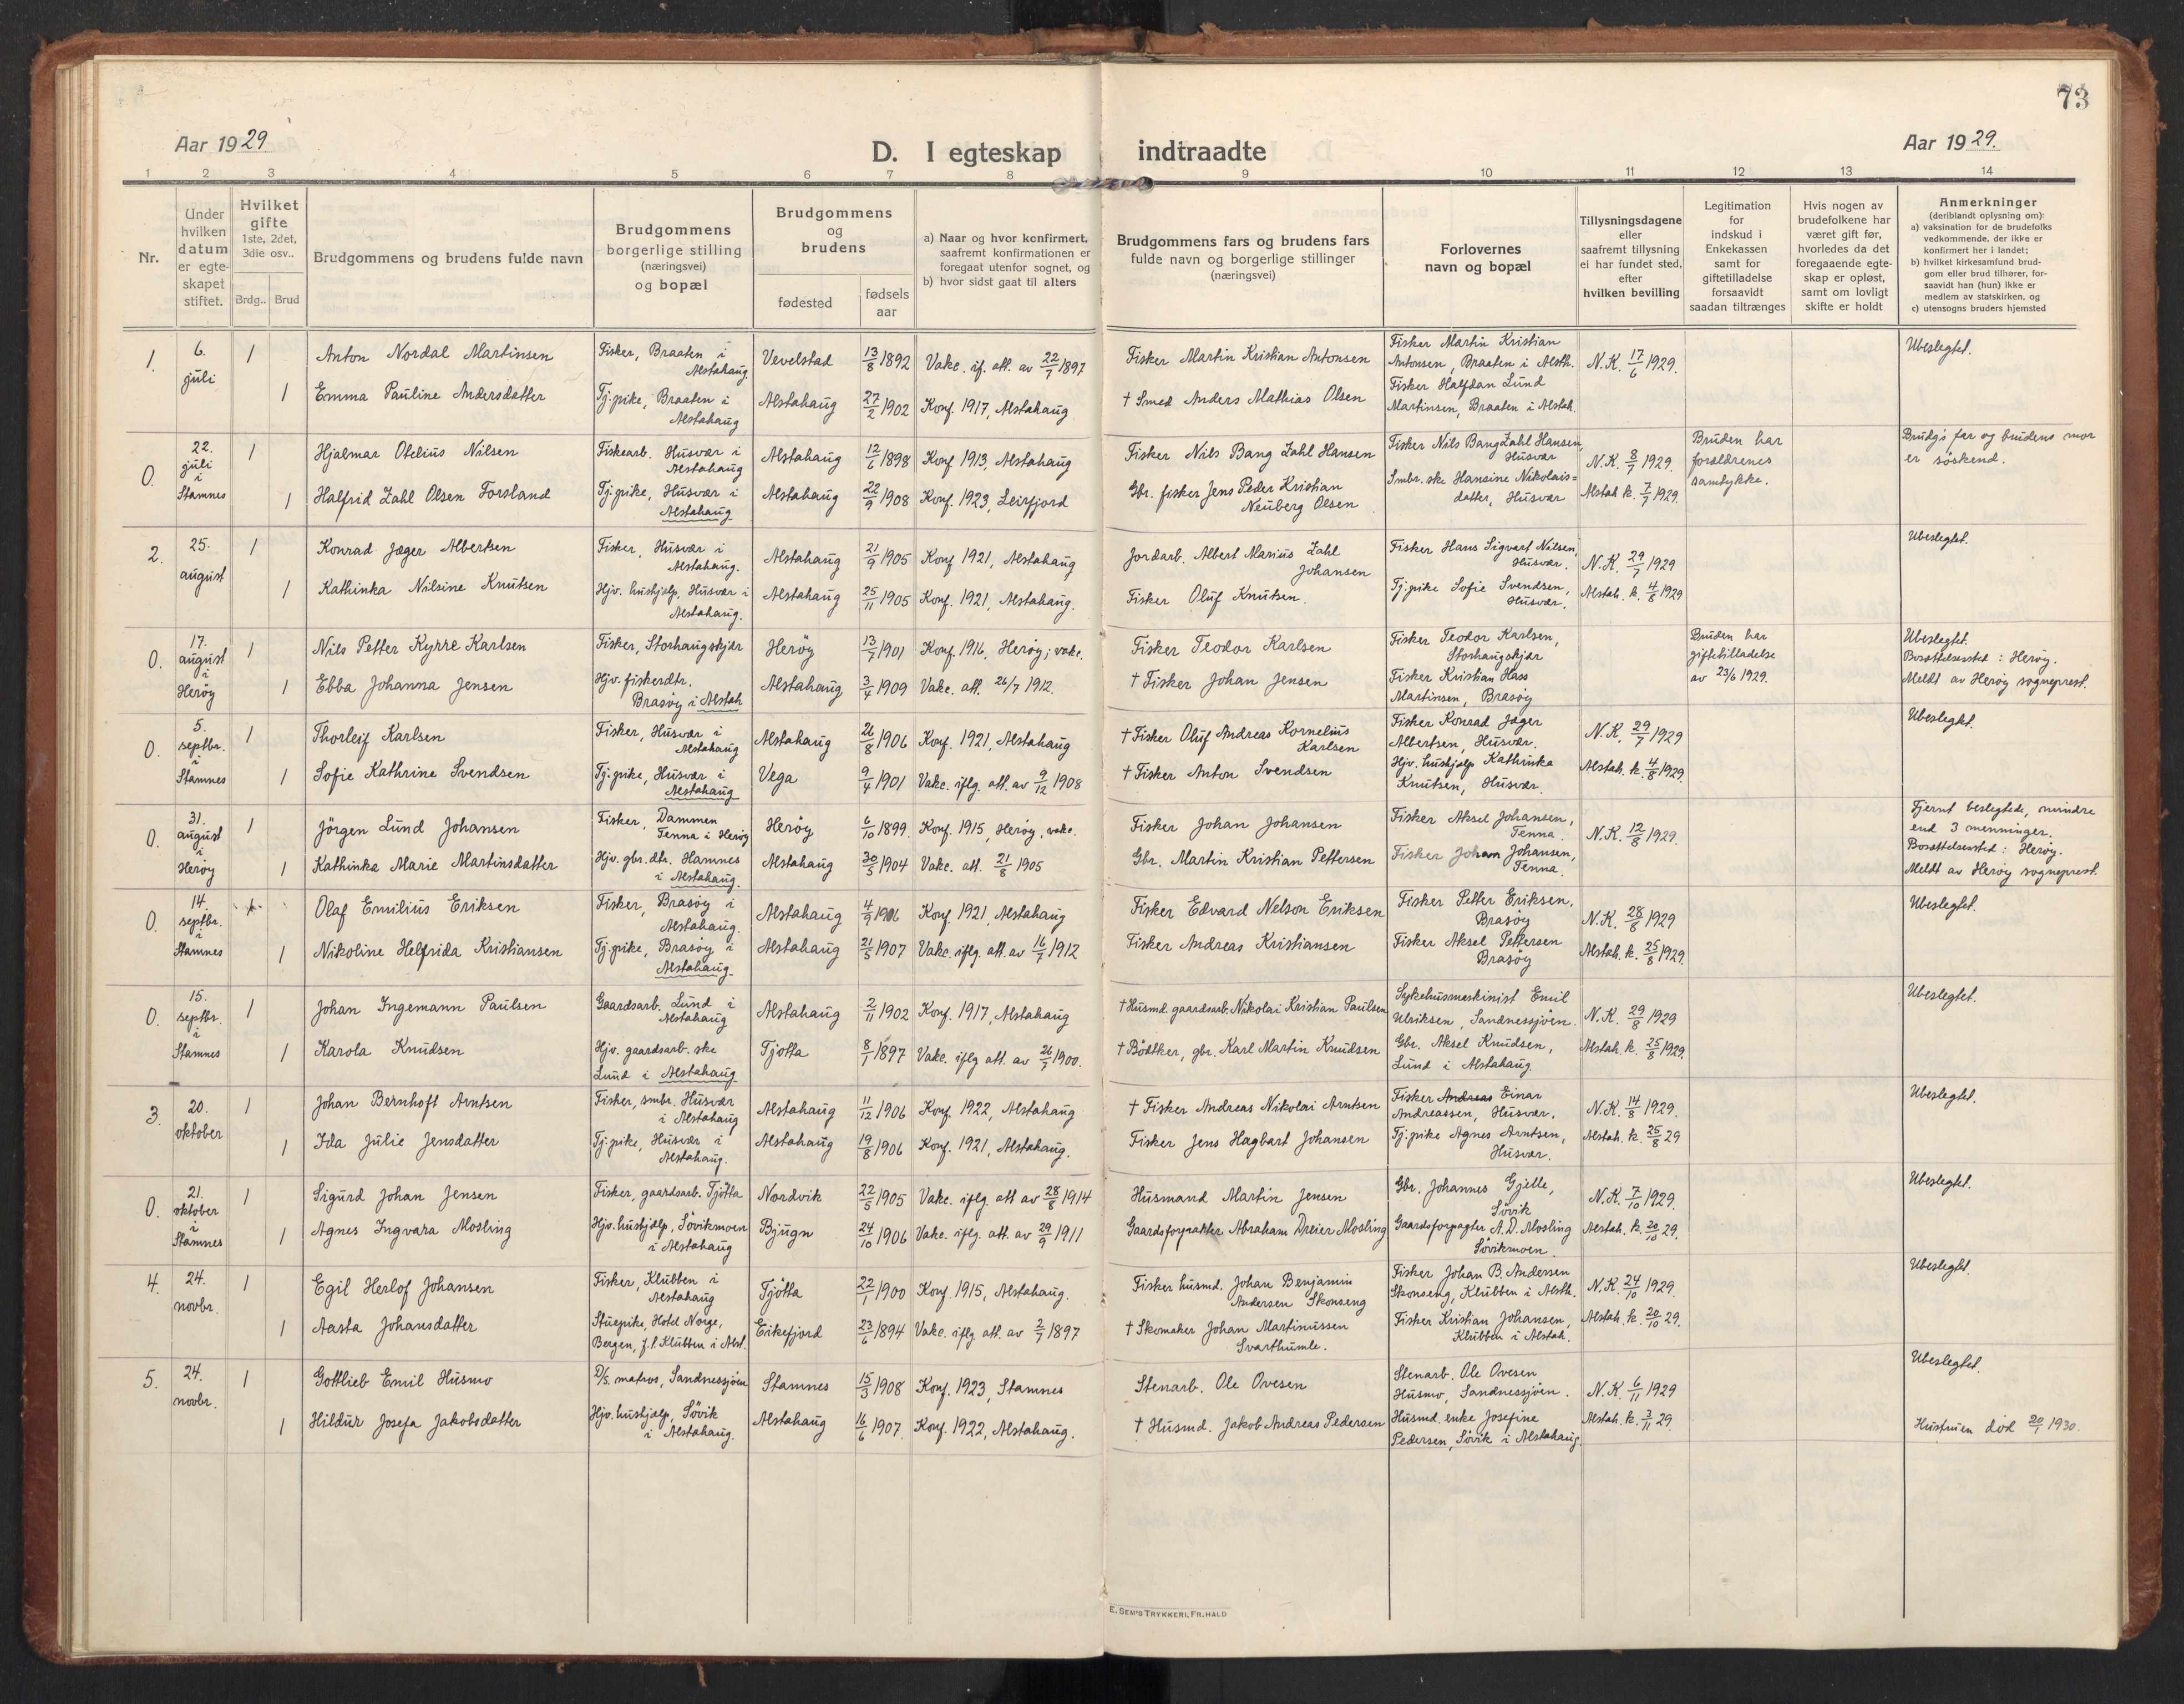 73
Aar 1929
D. I egteskap indtraadte
Aar 1929.
1 2 3 4 5 6 7 8 9 10 11 12 13 14
Nr.
Under
hvilken
datum
er egte-
skapet
stiftet.
Hvilket
gifte
1ste, 2det,
3die osv..
Brdg.. Brud
Brudgommens og brudens fulde navn
Brudgommens
borgerlige stilling
(næringsvei)
og bopæl
Brudgommens
og
brudens
fødested
fødsels
aar
a) Naar og hvor konfirmert,
saafremt konfirmationen er
foregaat utenfor sognet, og
b) hvor sidst gaat til alters
Brudgommens fars og brudens fars
fulde navn og borgerlige stillinger
(næringsvei)
Forlovernes
navn og bopæl
Tillysningsdagene
eller
saafremt tillysning
ei har fundet sted,
efter
hvilken bevilling
Legitimation
for
indskud i
Enkekassen
samt for
giftetilladelse
forsaavidt
saadan tiltrænges
Hvis nogen av
brudefolkene har
været gift før,
hvorledes da det
foregaaende egte-
skap er opløst,
samt om lovligt
skifte er holdt
Anmerkninger
(deriblandt oplysning om):
a) vaksination for de brudefolks
vedkommende, der ikke er
konfirmert her i landet;
b) hvilket kirkesamfund brud-
gom eller brud tilhører, for-
saavidt han (hun) ikke er
medlem av statskirken, og
c) utensogns bruders hjemsted
1.
6.
juli
1
Anton Nordal Martinsen
Fisker, Braaten i
Alstahaug.
Vevelstad
13/8 1892
Vakc. if. att. av 22/7 1897
Fisker Martin Kristian Antonsen
Fisker Martin Kristian
Antonsen, Braaten i Alsth.
N.K. 17/6 1929.
Ubeslegtet.
1
Emma Pauline Andersdatter
Tj.pike, Braaten i
Alstahaug
Alstahaug
27/2 1902
Konf. 1917, Alstahaug
† Smed Anders Mathias Olsen
Fisker Halfdan Lund
Martinsen, Braaten i Alstah.
0.
22.
juli
i
Stamnes
1
Hjalmar Otelius Nilsen
Fiskearb. Husvær i
Alstahaug
Alstahaug
12/6 1898
Konf. 1913, Alstahaug
Fisker Nils Bang Zahl Hansen
Fisker Nils Bang Zahl Hansen,
Husvær
N.K. 8/7 1929.
Bruden har
forældrenes
samtykke.
Brudg's far og brudens mor
er søskend.
1
Halfrid Zahl Olsen Forsland
Tj.pike, Husvær i
Alstahaug
Alstahaug
22/9 1908
Konf. 1923, Leirfjord
Gbr. fisker Jens Peder Kristian
Neuberg Olsen
Smbr. ske Hansine Nikolais=
datter, Husvær
Alstah k. 7/7 1929.
2.
25.
august
1
Konrad Jæger Albertsen
Fisker, Husvær i
Alstahaug.
Alstahaug
21/9 1905
Konf. 1921, Alstahaug
Jordarb. Albert Marius Zahl
Johansen
Fisker Hans Sigvart Nilsen,
Husvær.
N.K. 29/7 1929
Ubeslegtet.
1
Kathinka Nilsine Knutsen
Hjv. hushjelp, Husvær i
Alstahaug.
Alstahaug
25/11 1905
Konf. 1921, Alstahaug.
Fisker Oluf Knutsen.
Tj.pike Sofie Svendsen,
Husvær.
Alstah. k. 4/8 1929
0.
17.
august
i
Herøy
1
Nils Petter Kyrre Karlsen
Fisker, Storhaugskjær
Herøy
13/7 1901
Konf. 1916, Herøy; vakc.
Fisker Teodor Karlsen
Fisker Teodor Karlsen,
Storhaugskjær
Bruden har
giftetilladelse
av 23/6 1929.
Ubeslegtet.
Bosættelsessted: Herøy.
Meldt av Herøy sogneprest.
1
Ebba Johanna Jensen
Hjv. fiskerdtr.
Brasøy i Alstah
Alstahaug
3/4 1909
Vakc. att. 26/7 1912.
† Fisker Johan Jensen
Fisker Kristian Hass
Martinsen, Brasøy
0.
5.
septbr.
i
Stamnes
1
Thorleif Karlsen
Fisker, Husvær i
Alstahaug
Alstahaug
26/8 1906
Konf. 1921, Alstahaug
† Fisker Oluf Andreas Kornelius
Karlsen
Fisker Konrad Jæger
Albertsen, Husvær.
N.K. 29/7 1929
Ubeslegtet.
1
Sofie Kathrine Svendsen
Tj.pike, Husvær i
Alstahaug
Vega
9/4 1901
Vakc. iflg. att. av 9/12 1908
† Fisker Anton Svendsen
Hjv. hushjelp Kathinka
Knutsen, Husvær.
Alstah. k. 4/8 1929.
0.
31.
august
i
Herøy
1
Jørgen Lund Johansen
Fisker, Dammen
Tenna i Herøy
Herøy
6/10 1899.
Konf. 1915, Herøy, vakc.
Fisker Johan Johansen
Fisker Aksel Johansen,
Tenna.
N.K. 12/8 1929.
Fjernt beslegtede, mindre
end 3 menninger.
Bosættelsessted: Herøy.
Meldt av Herøy sogneprest.
1
Kathinka Marie Martinsdatter
Hjv. gbr. dtr. Hamnes
i Alstahaug.
Alstahaug
30/5 1904
Vakc. att. 21/8 1905
Gbr. Martin Kristian Pettersen
Fisker Johan Johansen,
Tenna.
0.
14.
septbr.
i
Stamnes
1
Olaf Emilius Eriksen
Fisker, Brasøy i
Alstahaug.
Alstahaug
4/9 1906
Konf. 1921, Alstahaug
Fisker Edvard Nelson Eriksen
Fisker Petter Eriksen,
Brasøy
N.K. 28/8 1929
Ubeslegtet.
1
Nikoline Helfrida Kristiansen
Tj.pike, Brasøy i
Alstahaug.
Alstahaug
21/5 1907
Vakc. iflg. att. av 16/7 1912
Fisker Andreas Kristiansen
Fisker Aksel Pettersen
Brasøy
Alstah. k. 25/8 1929.
0.
15.
septbr.
i
Stamnes
1
Johan Ingemann Paulsen
Gaardsarb. Lund i
Alstahaug
Alstahaug
2/11 1902
Konf. 1917, Alstahaug
† Husmd. gaardsarb. Nikolai Kristian Paulsen
Sykehusmaskinist Emil
Ulriksen, Sandnessjøen.
N.K. 29/8 1929
Ubeslegtet.
1
Karola Knudsen
Hjv. gaardsarb. ske
Lund i Alstahaug
Tjøtta
8/1 1897
Vakc. iflg. att. av 26/7 1900.
† Bødtker, gbr. Karl Martin Knudsen
Gbr. Aksel Knudsen,
Lund i Alstahaug.
Alstah. k. 25/8 1929.
3.
20.
oktober
1
Johan Bernhoft Arntsen
Fisker, smbr. Husvær
i Alstahaug
Alstahaug
11/12 1906
Konf. 1922, Alstahaug
† Fisker Andreas Nikolai Arntsen
Fisker Andreas Einar
Andreassen, Husvær.
N.K. 14/8 1929.
Ubeslegtet.
1
Ida Julie Jensdatter
Tj.pike, Husvær i
Alstahaug.
Alstahaug
19/8 1906
Konf. 1921, Alstahaug.
Fisker Jens Hagbart Johansen
Tj.pike Agnes Arntsen,
Husvær.
Alstah. k. 25/8 29
0.
21.
oktober
i
Stamnes
1
Sigurd Johan Jensen
Fisker, gaardsarb. Tjøtta
Nordvik
22/5 1905
Vakc. iflg. att av 28/8 1914
Husmand Martin Jensen
Gbr. Johannes Gjelle,
Søvik
N.K. 7/10 1929.
Ubeslegtet.
1
Agnes Ingvara Mosling
Hjv. hushjælp, Søvikmoen
i Alstahaug
Bjugn
24/10 1906
Vakc. iflg. att. av 29/9 1911
Gaardsforpakter Abraham Dreier Mosling
Gaardsforpagter A. D. Mosling
Søvikmoen.
Alstah. k. 20/10 29.
4.
24.
novbr.
1
Egil Herlof Johansen
Fisker, Klubben i
Alstahaug
Tjøtta
22/1 1900
Konf. 1915, Alstahaug.
Fisker husmd. Johan Benjamin
Andersen Skonseng
Fisker Johan B. Andersen
Skonseng, Klubben i Alsth.
N.K. 24/10 1929.
Ubeslegtet.
1
Aasta Johansdatter
Stuepike, Hotel Norge,
Bergen, f.t. Klubben i Alst.
Eikefjord
23/6 1894
Vakc. iflg att. av 2/7 1897
† Skomaker Johan Martinussen
Svarthumle.
Fisker Kristian Johansen,
Klubben i Alstah.
Alstah. k. 20/10 29.
5.
24.
novbr.
1
Gottlieb Emil Husmo
D/S. matros, Sandnessjøen
Stamnes
15/3 1908
Konf. 1923, Stamnes
Stenarb. Ole Ovesen
Stenarb. Ole Ovesen
Husmo, Sandnessjøen.
N.K. 6/11 1929
Ubeslegtet.
1
Hildur Josefa Jakobsdatter
Hjv. hushjælp, Søvik
i Alstahaug.
Alstahaug
16/6 1907.
Konf. 1922, Alstahaug.
† Husmd. Jakob Andreas Pedersen
Husmd. enke Josefine
Pedersen, Søvik i Alstahaug.
Alstah. k. 3/11 29.
Hustruen død 20/1 1930.
E. SEM'S TRYKKERI, FR. HALD